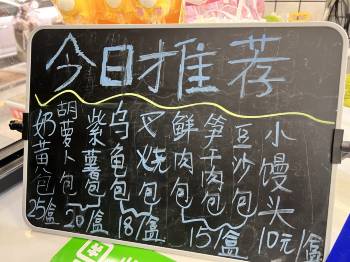 今日推荐
奶黄包
25/盒
胡萝卜包
紫薯包
20/盒
乌龟包
叉烧包
18/盒
鲜肉包
笋干肉包
豆沙包
15/盒
小馒头
10元/盒